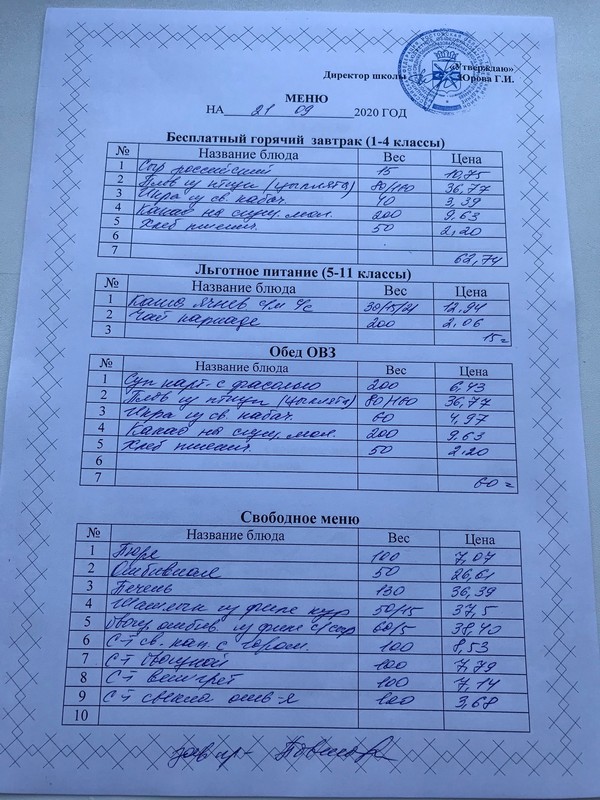 «Утверждаю»
Директор школы Юрова Г.И.
МЕНЮ
НА 21 09 2020 ГОД
Бесплатный горячий завтрак (1-4 классы)
№ Название блюда Вес Цена
1 Сыр российский 15 10,75
2 Плов из птицы (цыплята) 80/160 36,77
3 Икра из св. кабач. 40 3,39
4 Какао на сгущ. мол. 200 9,63
5 Хлеб пшенич. 50 2,20
6
7 62,74
Льготное питание (5-11 классы)
№ Название блюда Вес Цена
1 Каша ячнев с/м 12,94
2 Чай каркаде 200 2,06
3 15=
Обед ОВЗ
№ Название блюда Вес Цена
1 Суп карт. с фасолью 200 6,43
2 Плов из птицы (цыплята) 80/160 36,77
3 Икра из св. кабач. 60 4,97
4 Какао на сгущ. мол. 200 9,63
5 Хлеб пшенич. 50 2,20
6
7 60=
Свободное меню
№ Название блюда Вес Цена
1 Пюре 100 7,07
2 Отбивная 50 26,61
3 Печень 130 36,39
4 Шашлык из филе кур 50/15 37,5
5 отбив. из филе с/сыр 60/5 38,40
6 С-т св. кап. с горош. 100 8,53
7 С-т овощной 100 7,79
8 С-т винегрет 100 7,14
9 С-т свекла отв-я 100 3,68
10